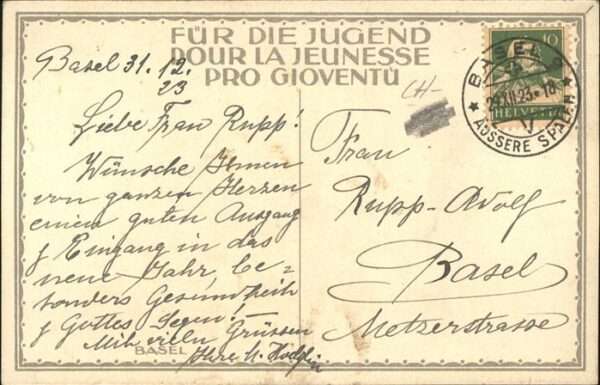 FÜR DIE JUGEND
POUR LA JEUNESSE
PRO GIOVENTÙ
Basel 31. 12.
23
Liebe Frau Rupp!
Wünsche Ihnen
von ganzen Herzen
einen guten Ausgang
& Eingang in das
neue Jahr, be=
sonders Gesundheit
& Gottes Segen!
Mit vielen Grüssen
Ihre
BASEL
CH-
10
HELVETIA
BASEL
XII.23.-18
V
ÄUSSERE SPALEN
Frau
Rupp-Adolf
Basel
Metzerstrasse